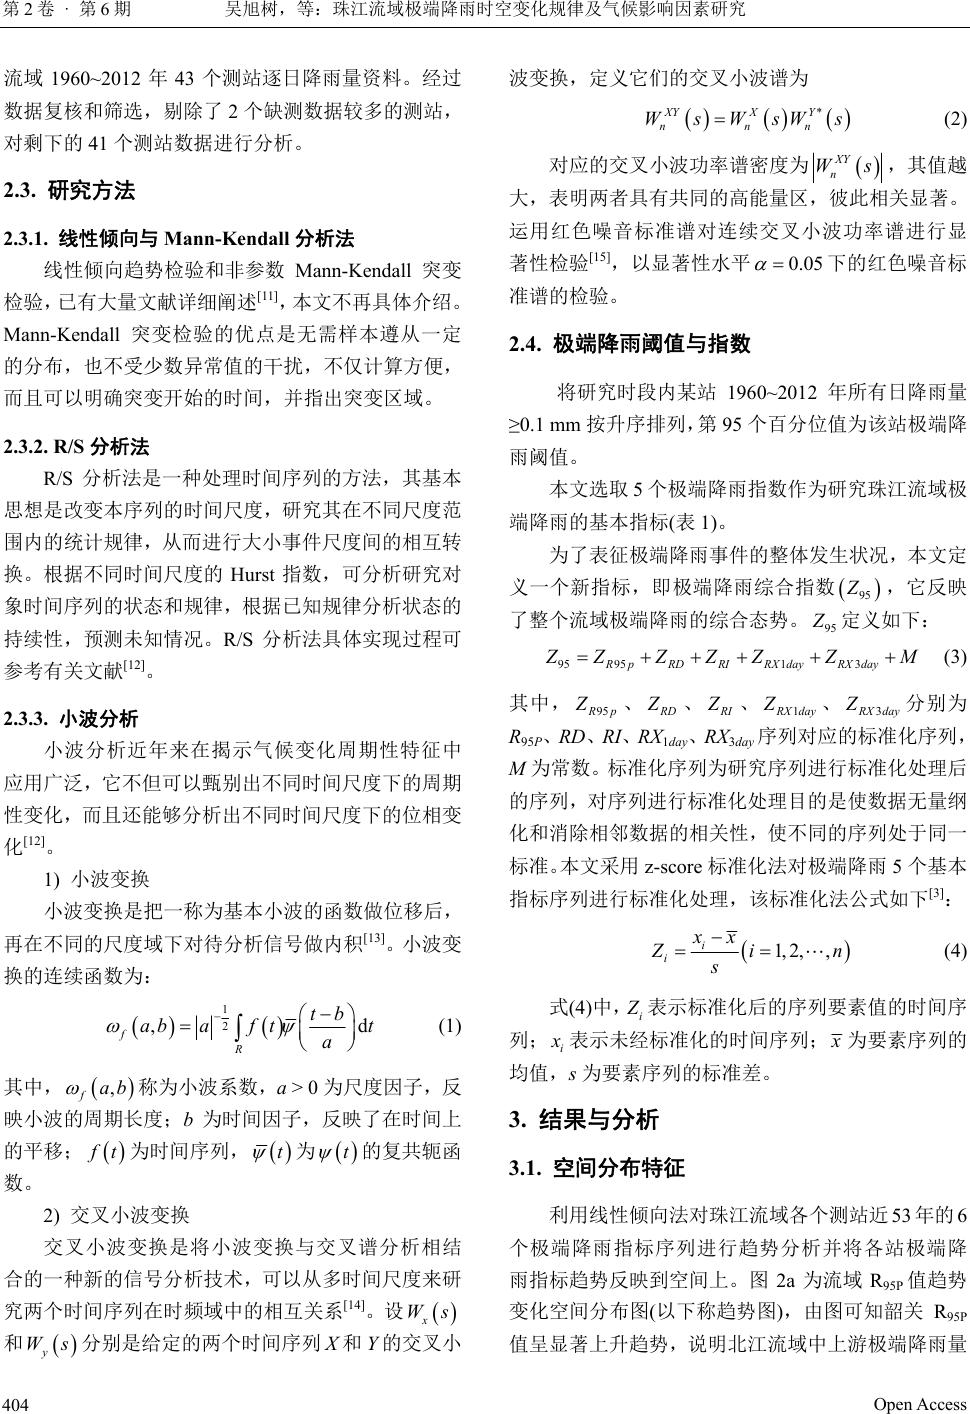 第 2 卷 · 第 6 期 吴旭树，等：珠江流域极端降雨时空变化规律及气候影响因素研究
流域 1960~2012 年 43 个测站逐日降雨量资料。经过
数据复核和筛选，剔除了 2 个缺测数据较多的测站，
对剩下的 41 个测站数据进行分析。
2.3. 研究方法
2.3.1. 线性倾向与 Mann-Kendall 分析法
线性倾向趋势检验和非参数 Mann-Kendall 突变
检验，已有大量文献详细阐述[11]，本文不再具体介绍。
Mann-Kendall 突变检验的优点是无需样本遵从一定
的分布，也不受少数异常值的干扰，不仅计算方便，
而且可以明确突变开始的时间，并指出突变区域。
2.3.2. R/S 分析法
R/S 分析法是一种处理时间序列的方法，其基本
思想是改变本序列的时间尺度，研究其在不同尺度范
围内的统计规律，从而进行大小事件尺度间的相互转
换。根据不同时间尺度的 Hurst 指数，可分析研究对
象时间序列的状态和规律，根据已知规律分析状态的
持续性，预测未知情况。R/S 分析法具体实现过程可
参考有关文献[12]。
2.3.3. 小波分析
小波分析近年来在揭示气候变化周期性特征中
应用广泛，它不但可以甄别出不同时间尺度下的周期
性变化，而且还能够分析出不同时间尺度下的位相变
化[12]。
1) 小波变换
小波变换是把一称为基本小波的函数做位移后，
再在不同的尺度域下对待分析信号做内积[13]。小波变
换的连续函数为：
ω_f(a,b) = |a|^{-1/2} ∫_R f(t) ψ̅((t−b)/a) dt (1)
其中，ω_f(a,b) 称为小波系数，a > 0 为尺度因子，反
映小波的周期长度；b 为时间因子，反映了在时间上
的平移；f(t) 为时间序列，ψ̅(t) 为 ψ(t) 的复共轭函
数。
2) 交叉小波变换
交叉小波变换是将小波变换与交叉谱分析相结
合的一种新的信号分析技术，可以从多时间尺度来研
究两个时间序列在时频域中的相互关系[14]。设 W_x(s)
和 W_y(s) 分别是给定的两个时间序列 X 和 Y 的交叉小
波变换，定义它们的交叉小波谱为
W_n^{XY}(s) = W_n^X(s) W_n^{Y*}(s) (2)
对应的交叉小波功率谱密度为 |W_n^{XY}(s)|，其值越
大，表明两者具有共同的高能量区，彼此相关显著。
运用红色噪音标准谱对连续交叉小波功率谱进行显
著性检验[15]，以显著性水平 α = 0.05 下的红色噪音标
准谱的检验。
2.4. 极端降雨阈值与指数
将研究时段内某站 1960~2012 年所有日降雨量
≥0.1 mm 按升序排列，第 95 个百分位值为该站极端降
雨阈值。
本文选取 5 个极端降雨指数作为研究珠江流域极
端降雨的基本指标(表 1)。
为了表征极端降雨事件的整体发生状况，本文定
义一个新指标，即极端降雨综合指数 (Z_95)，它反映
了整个流域极端降雨的综合态势。Z_95 定义如下：
Z_95 = Z_R95p + Z_RD + Z_RI + Z_RX1day + Z_RX3day + M (3)
其中，Z_R95p、Z_RD、Z_RI、Z_RX1day、Z_RX3day 分别为
R95P、RD、RI、RX1day、RX3day 序列对应的标准化序列，
M 为常数。标准化序列为研究序列进行标准化处理后
的序列，对序列进行标准化处理目的是使数据无量纲
化和消除相邻数据的相关性，使不同的序列处于同一
标准。本文采用 z-score 标准化法对极端降雨 5 个基本
指标序列进行标准化处理，该标准化法公式如下[3]：
Z_i = (x_i − x̅)/s (i = 1,2,⋯,n) (4)
式(4)中，Z_i 表示标准化后的序列要素值的时间序
列；x_i 表示未经标准化的时间序列；x̅ 为要素序列的
均值，s 为要素序列的标准差。
3. 结果与分析
3.1. 空间分布特征
利用线性倾向法对珠江流域各个测站近 53 年的 6
个极端降雨指标序列进行趋势分析并将各站极端降
雨指标趋势反映到空间上。图 2a 为流域 R95P 值趋势
变化空间分布图(以下称趋势图)，由图可知韶关 R95P
值呈显著上升趋势，说明北江流域中上游极端降雨量
404 Open Access